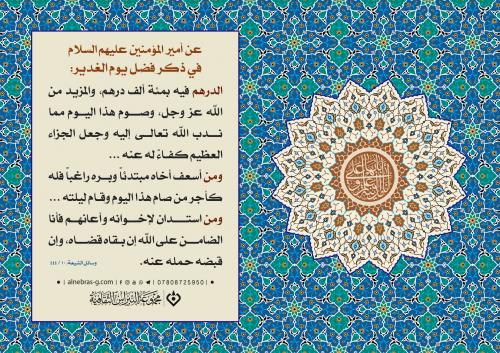 عن أمير المؤمنين عليهم السلام
في ذكر فضل يوم الغدير:
الدرهم فيه بمئة ألف درهم، والمزيد من
الله عز وجل، وصوم هذا اليوم مما
ندب الله تعالى إليه وجعل الجزاء
العظيم كفاءً له عنه ...
ومن أسعف أخاه مبتدئاً وبره راغباً فله
كأجر من صام هذا اليوم وقام ليلته ...
ومن استدان لإخوانه وأعانهم فأنا
الضامن على الله إن بقاه قضاه، وإن
قبضه حمله عنه.
وسائل الشيعة: ١٠ / ٤٤٤
• | alnebras-g.com | 07808725950 | •
مجموعة النبراس الثقافية